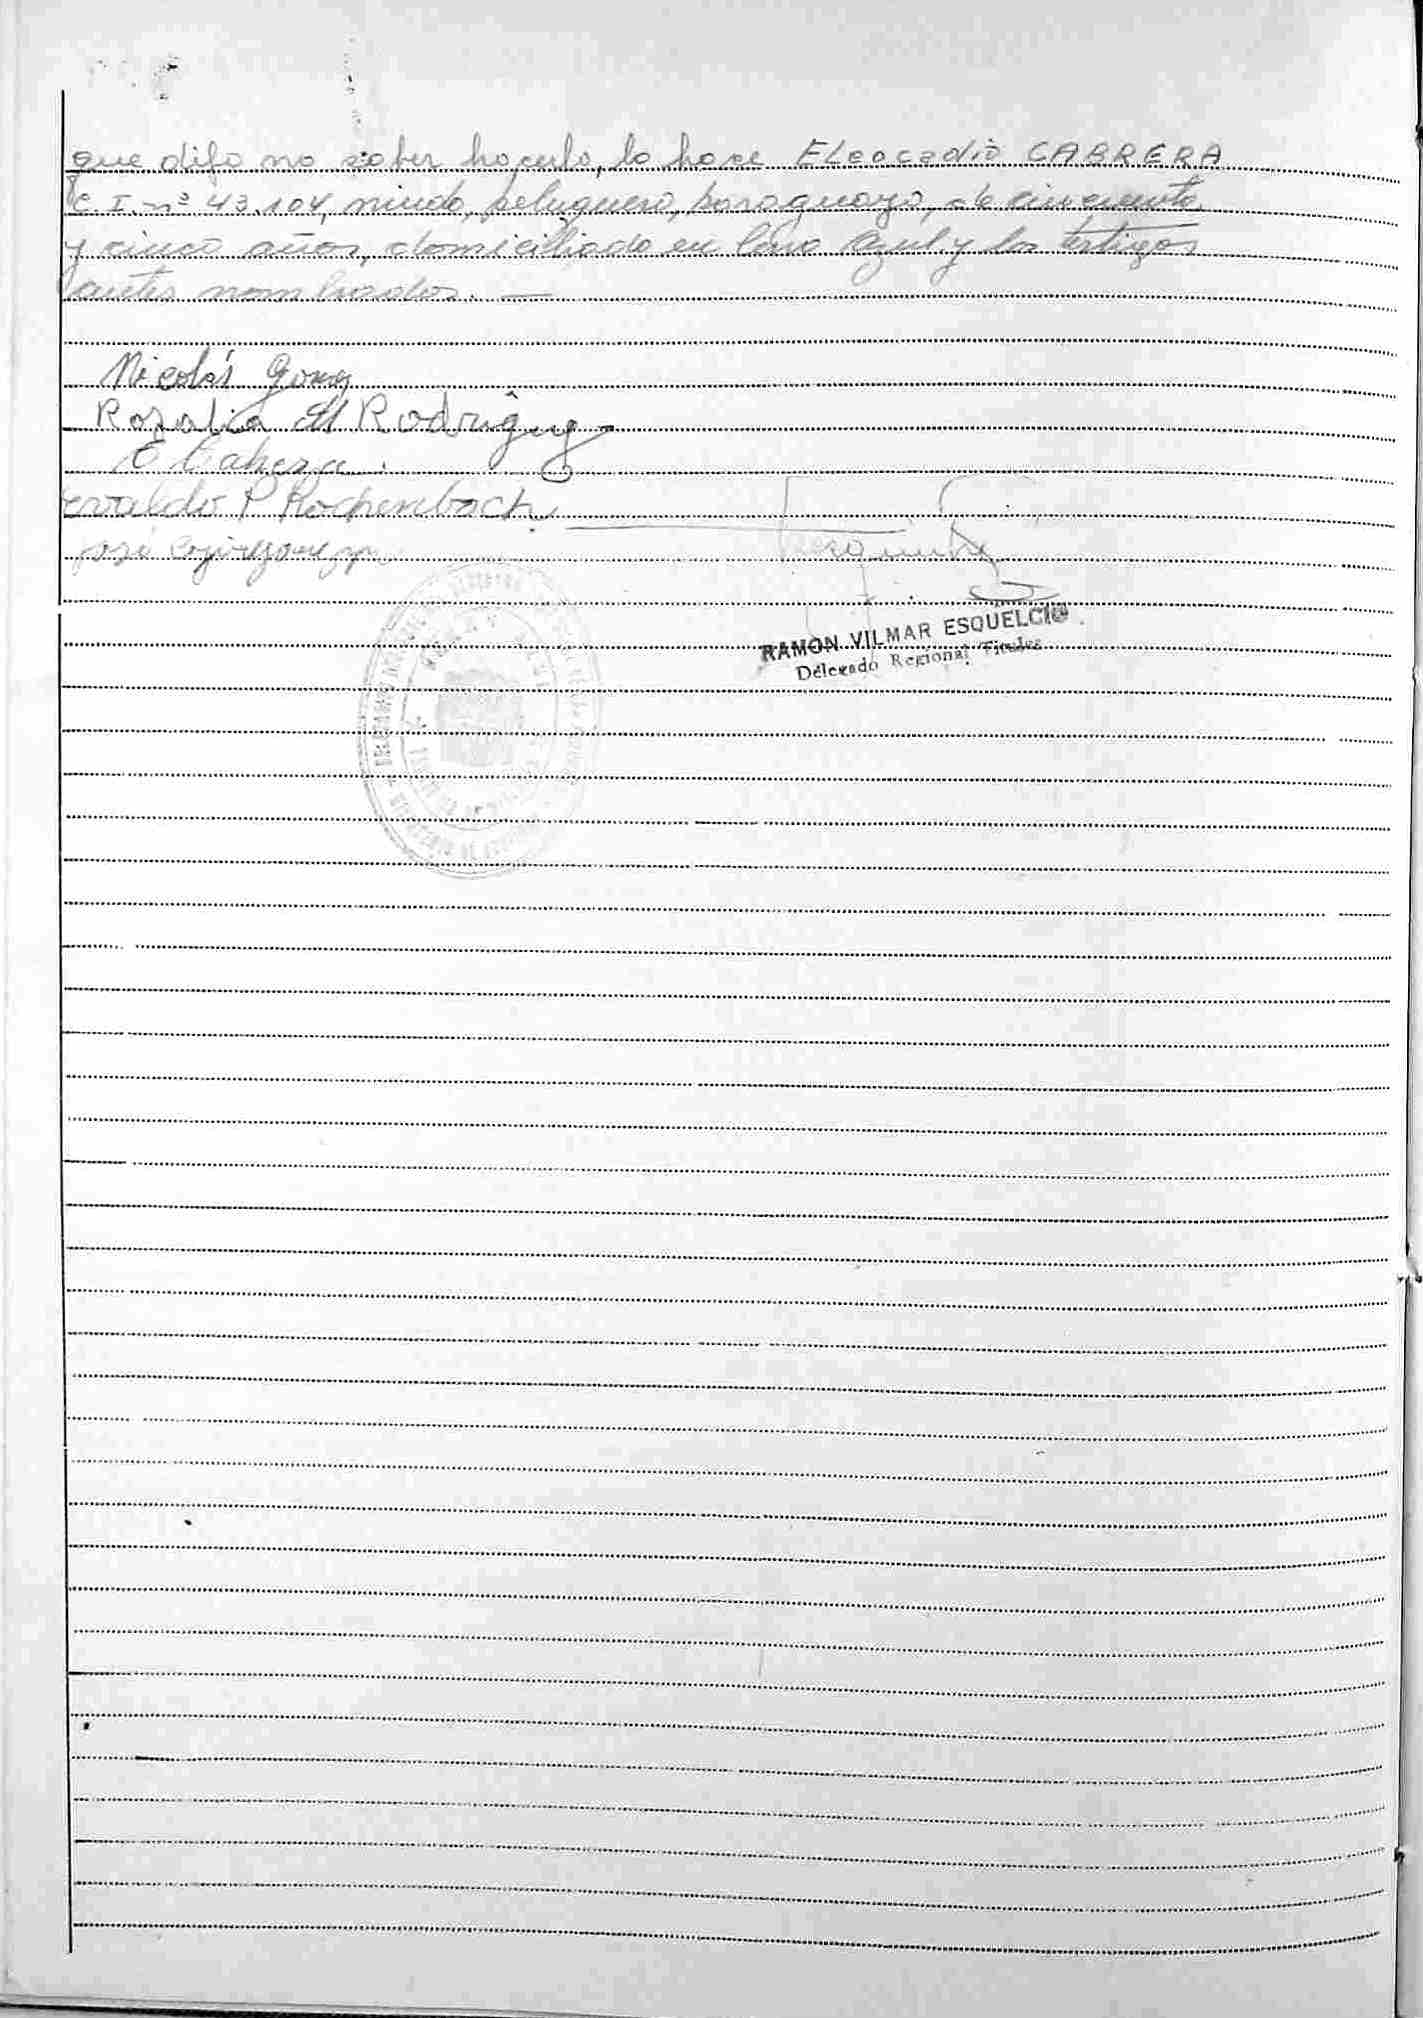 que dijo no saber hacerlo, lo hace Eleocadio CABRERA
C.I. nº 43.104, viudo, peluquero, paraguayo, de cincuenta
y cinco años, domiciliado en Azul y los testigos
antes nombrados. —
Nicolás Gomez
Rozalia M Rodriguez
E Cabrera.
Evaldo P Rochenbach
José
RAMON VILMAR ESQUELCIO
Delegado Regional Titules